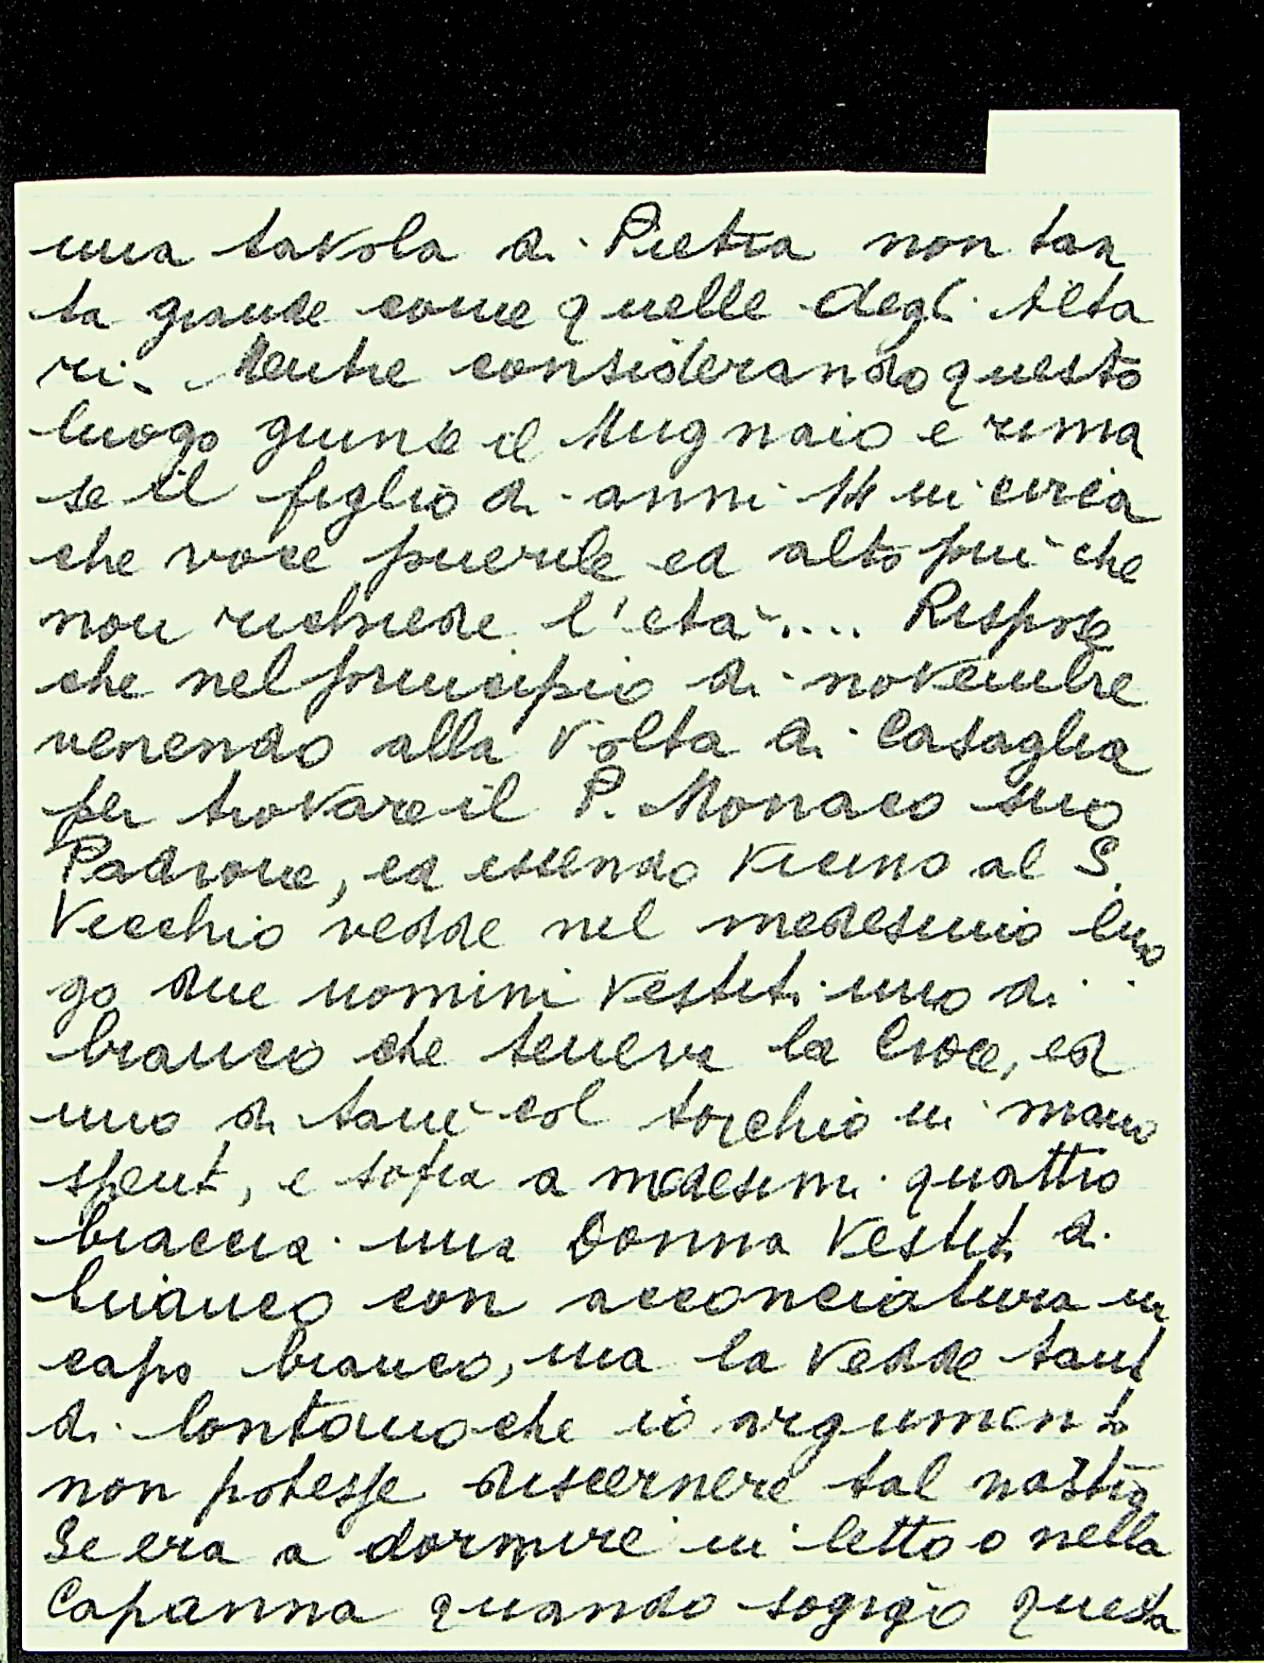 una tavola di Pietra non tan
ta grande come quelle degli Alta
ri. Mentre considerando questo
luogo giunse il Mugnaio e rima
se il figlio di anni 14 in circa
che voce puerile ed alto più che
non richiede l'età.... Rispose
che nel principio di novembre
venendo alla Volta di Casaglia
per trovare il P. Monaco suo
Padrone, ed essendo vicino al S.
Vecchio vedde nel medesimo luo
go due uomini vestiti uno di
bianco che teneva la Croce, ed
uno di tanè col torchio in mano
spent, e sopra a medesimi quattro
braccia una Donna Vestit di
bianco con acconciatura in
capo bianco, ma la vedde tant
di lontano che io argument
non potesse discernere tal nastro
Se era a dormire in letto o nella
Capanna quando sognò questa